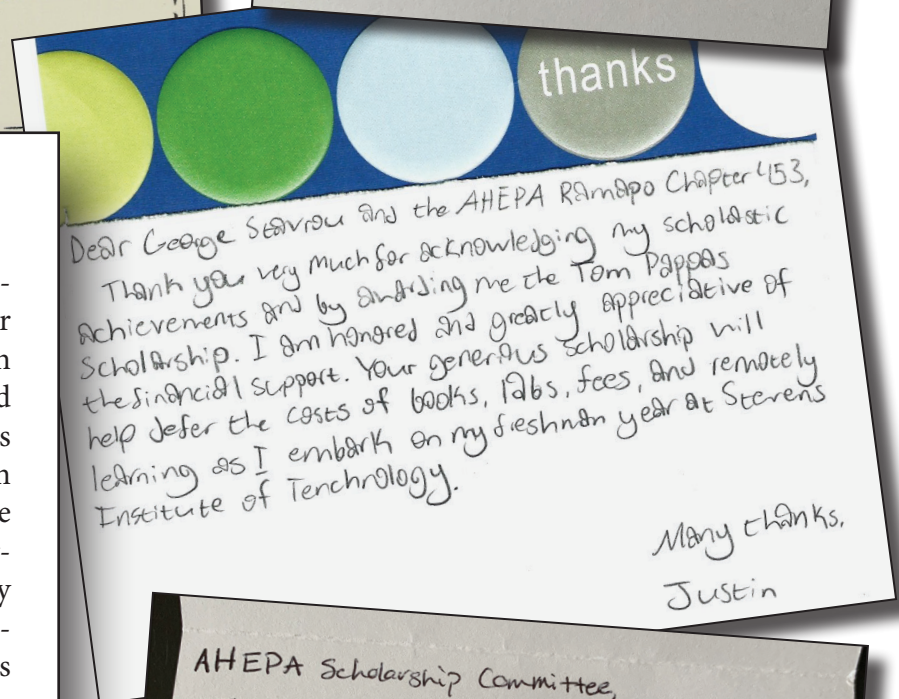 thanks
Dear George Stavrou and the AHEPA Ramapo Chapter 453,
Thank you very much for acknowledging my scholastic
achievements and by awarding me the Tom Pappas
Scholarship. I am honored and greatly appreciative of
the financial support. Your generous scholarship will
help defer the costs of books, labs, fees, and remotely
learning as I embark on my freshman year at Stevens
Institute of Tenchnology.
Many thanks,
Justin
AHEPA Scholarship Committee,
-
r
n
d
s
n
e
-
y
-
s